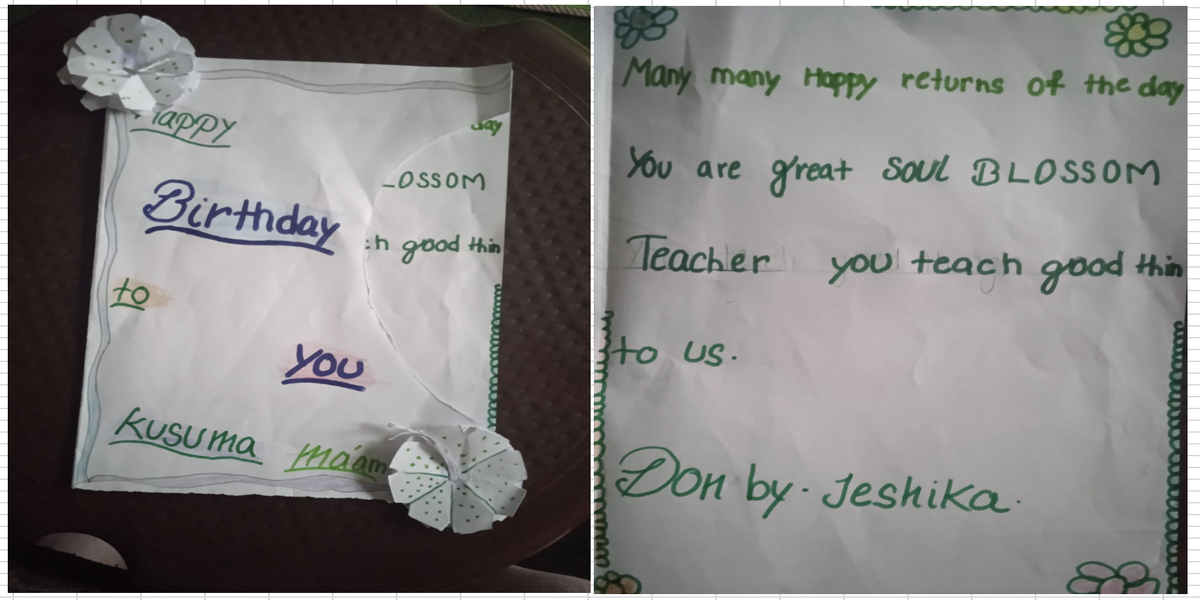 Happy
Birthday
to
you
Kusuma ma'am
day
LOSSOM
ch good thin
Many many Happy returns of the day
You are great soul BLOSSOM
Teacher you teach good thin
to us.
Don by. Jeshika.